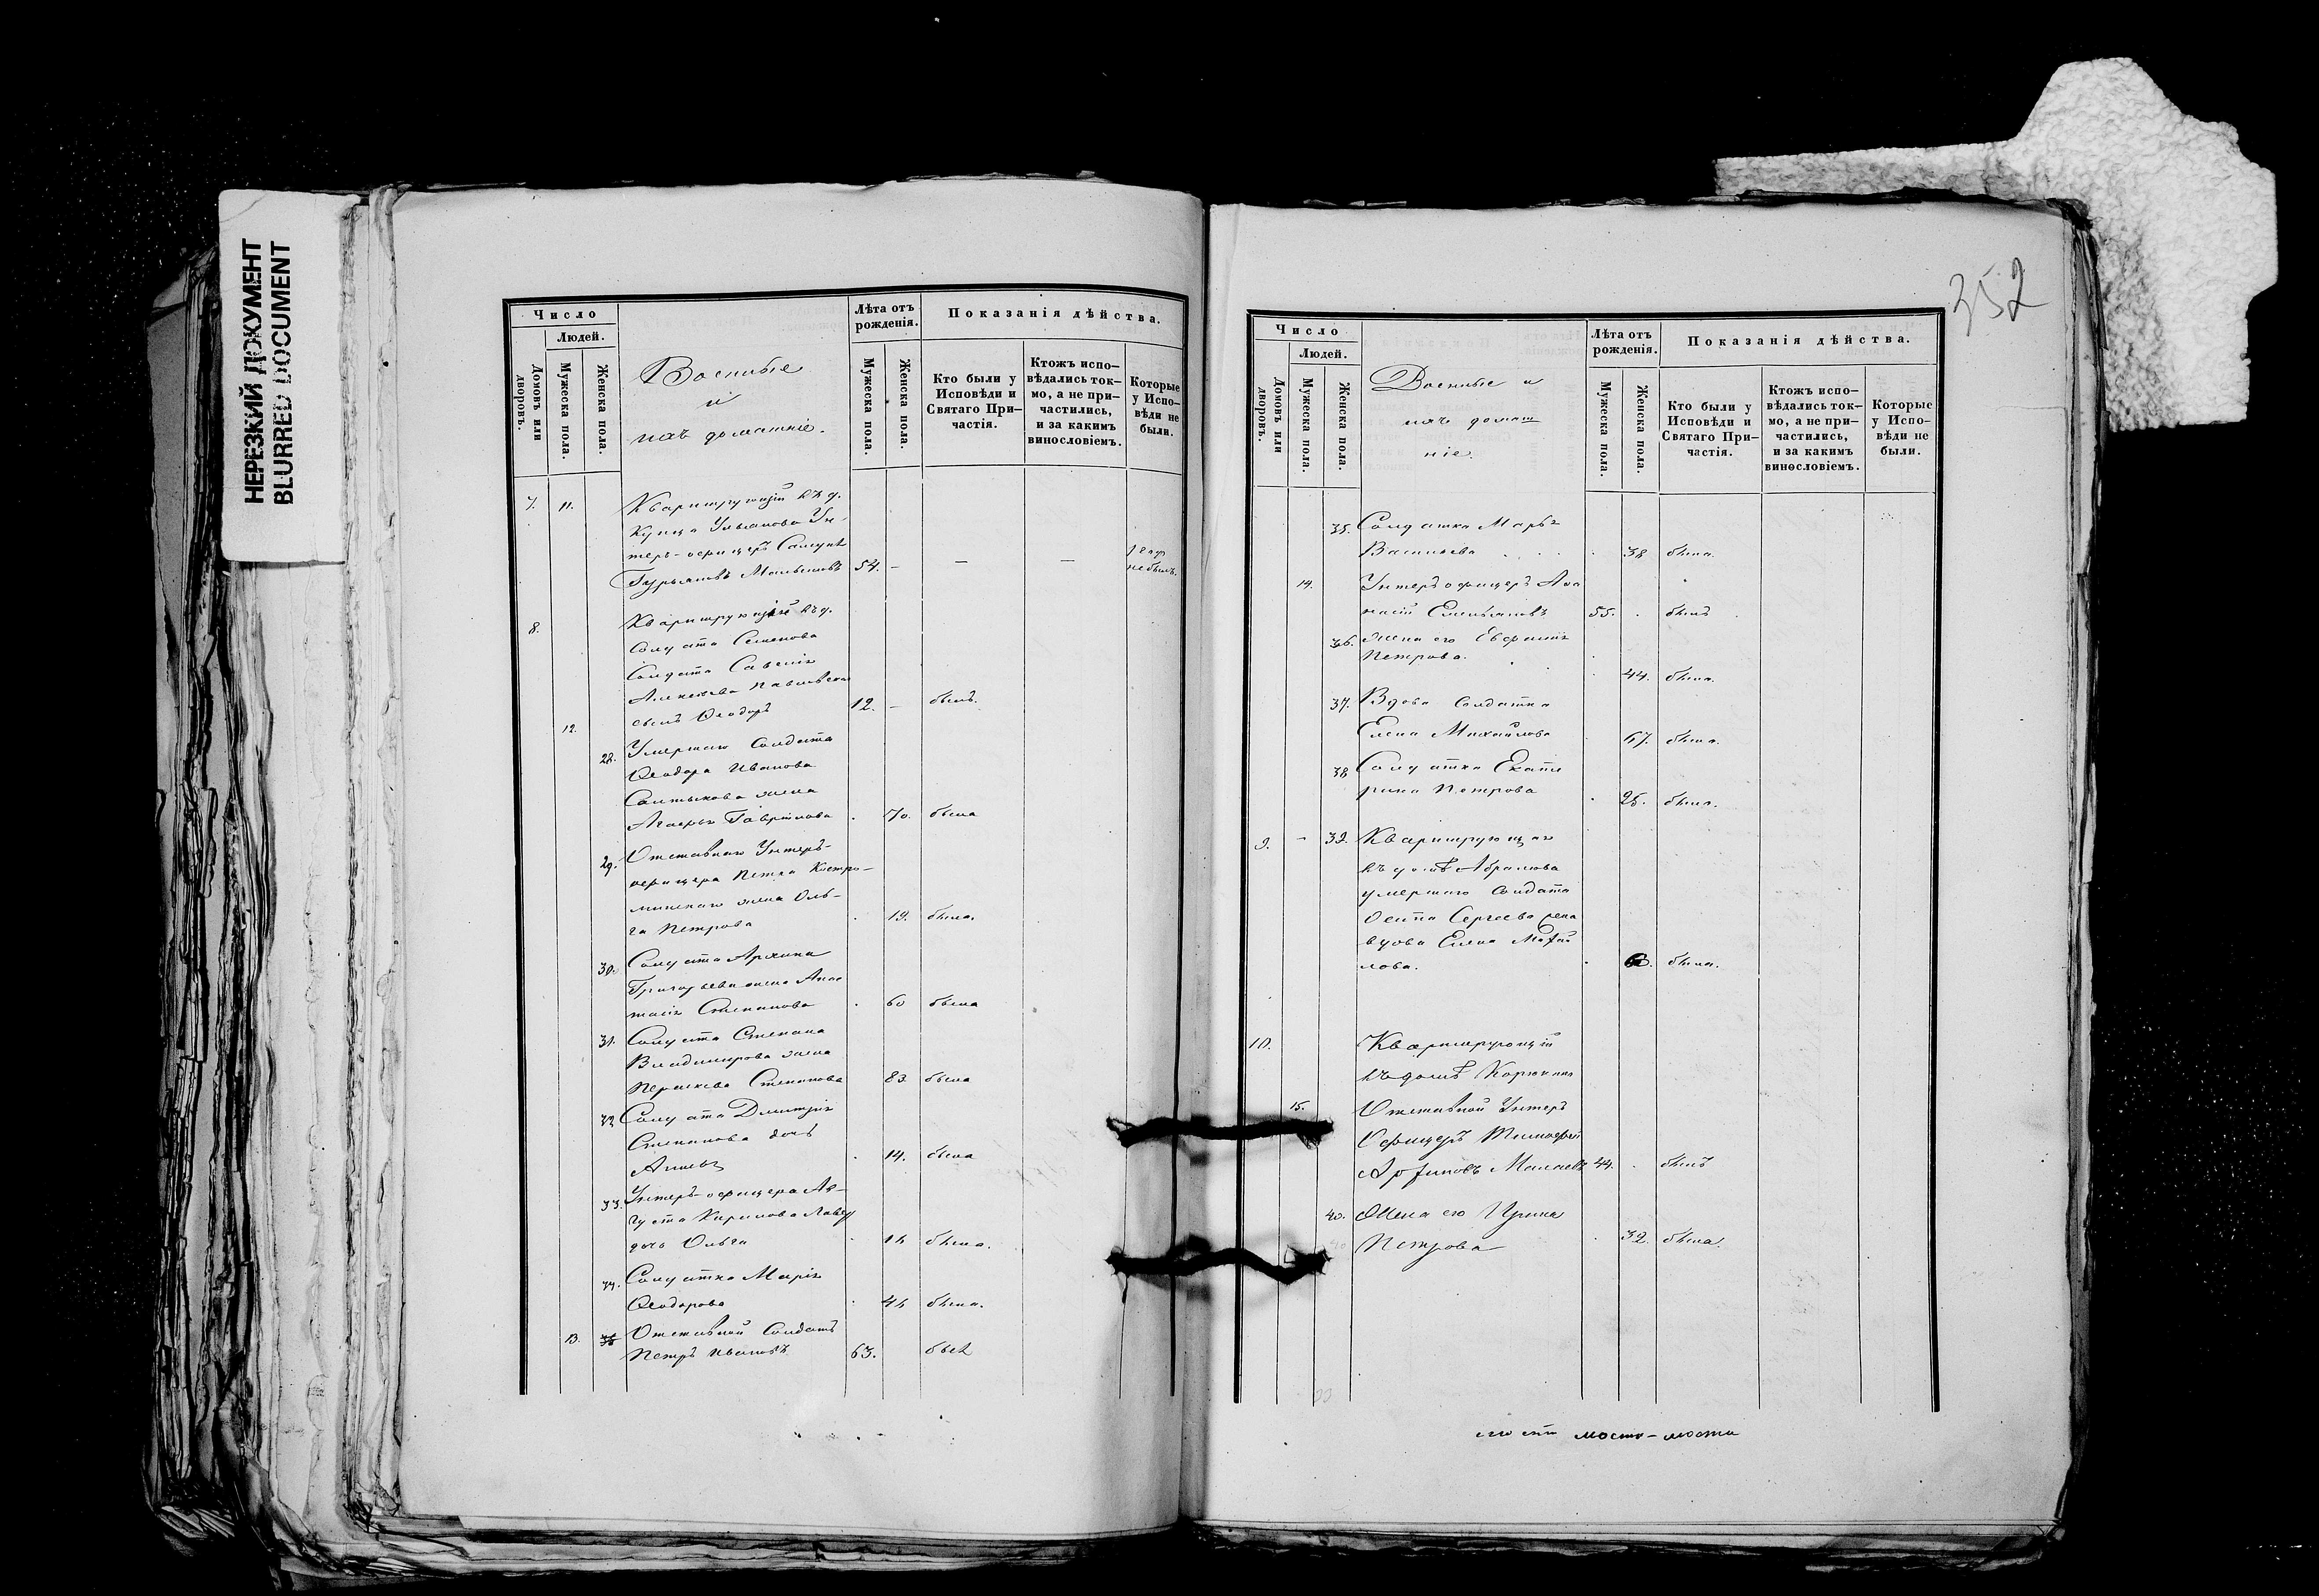 НЕРЕЗКИЙ ДОКУМЕНТ
BLURRED DOCUMENT
352
Число
Людей.
Домовъ или дворовъ.
Мужеска пола.
Женска пола.
Военные
и
ихъ домашніе.
Лѣта отъ рожденія.
Мужеска пола.
Женска пола.
Показанія дѣйства.
Кто были у Исповѣди и Святаго При-частія.
Ктожъ испо-вѣдались ток-мо, а не при-частились, и за какимъ винословіемъ.
Которые у Испо-вѣди не были.
7. 11. Квартирующій въ д.
Купца Ульянова Ун-
теръ-офицеръ
Гурьяновъ 54. — — — не былъ.
8. Квартирующіе въ д.
Солдата Семенова
Солдата Савелія
Алексѣева
12. сынъ Ѳеодоръ 12. — былъ.
28. Умершаго Солдата
Ѳеодора Иванова
Салтыкова жена
Гаврилова 70. была
29. Отставнаго Унтеръ-
офицера Петра Костро-
минскаго жена Оль-
га Петрова 19. была.
30. Солдата Архипа
Григорьева жена Анас
тасія Степанова 60 была
31. Солдата Степана
Владимирова жена
Параскева Степанова 83. была
32 Солдата Димитрія
Степанова дочь
14. была
33. Унтеръ-офицера Ав-
густа Кирилова
дочь Ольга была.
34. Солдатка Марія
Ѳеодорова была.
13. Отставной Солдатъ
Петръ Ивановъ 63. былъ
Число
Людей.
Домовъ или дворовъ.
Мужеска пола.
Женска пола.
Военные и
ихъ домаш
ніе.
Лѣта отъ рожденія.
Мужеска пола.
Женска пола.
Показанія дѣйства.
Кто были у Исповѣди и Святаго При-частія.
Ктожъ испо-вѣдались ток-мо, а не при-частились, и за какимъ винословіемъ.
Которые у Испо-вѣди не были.
35. Солдатка Марья
Васильева 38 была.
14. Унтеръ офицеръ Аѳа
насій Емельяновъ 55. былъ
36. жена его Евфимія
Петрова. 44. была.
37. Вдова Солдатка
Елена Михайлова 67. была.
38 Солдатка Екате
рина Петрова 25. была.
9. — 39. Квартирующая
въ домѣ Абрамова
умершаго Солдата
Осипа Сергеева жена
вдова Елена Михай
лова. была.
10. Квартирующій
въ домѣ
15. Отставной Унтеръ
Офицеръ Тимофей
44. былъ
40. Жена его Ирина
Петрова 32. была.